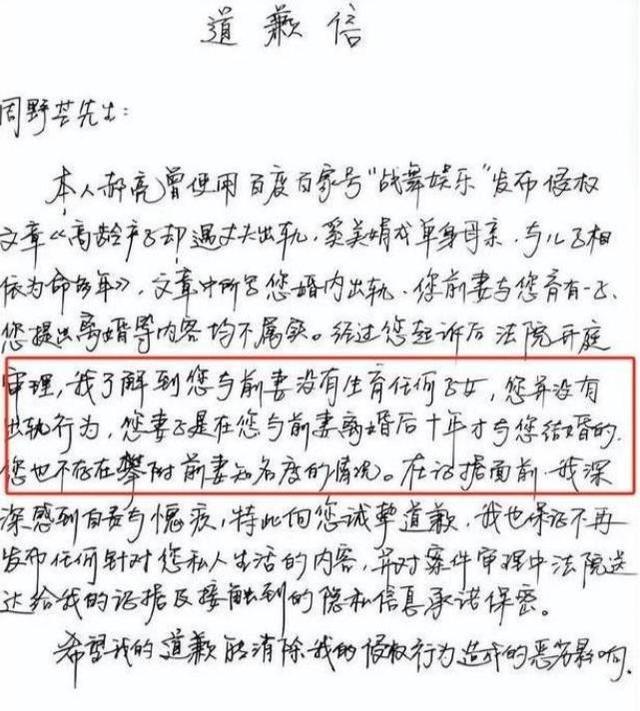 道歉信
周野芒先生：
本人郝亮曾使用百度百家号“战舞娱乐”发布侵权
文章《高龄产子却遇丈夫出轨，奚美娟成单身母亲，与儿子相
依为命多年》，文章中所写您婚内出轨、您前妻与您育有一子、
您提出离婚等内容均不属实。经过您起诉后法院开庭
审理，我了解到您与前妻没有生育任何子女，您并没有
出轨行为，您妻子是在您与前妻离婚后十年才与您结婚的，
您也不存在攀附前妻知名度的情况。在证据面前，我深
深感到自责与愧疚，特此向您诚挚道歉，我也保证不再
发布任何针对您私人生活的内容，并对案件审理中法院送
达给我的证据及接触到的隐私信息承诺保密。
希望我的道歉能消除我的侵权行为造成的恶劣影响。